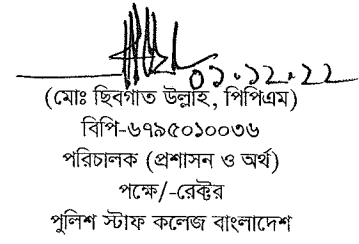 ০১.১২.২২
(মোঃ ছিবগাত উল্লাহ, পিপিএম)
বিপি-৬৭৯৫০১০০৩৬
পরিচালক (প্রশাসন ও অর্থ)
পক্ষে/-রেক্টর
পুলিশ স্টাফ কলেজ বাংলাদেশ